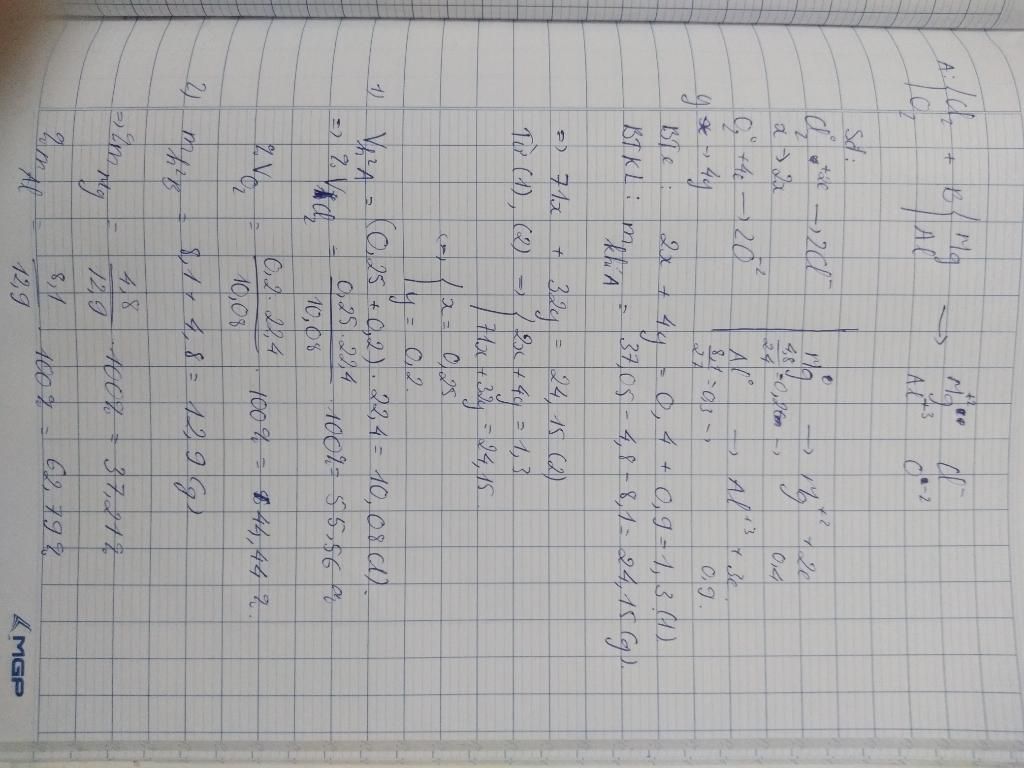 A: { Cl2 + B { Mg → Mg+2 Cl-
O2 Al Al+3 O-2
Sđ:
Cl2° + 2e → 2Cl- Mg° → Mg+2 + 2e
x → 2x 4,8/24 = 0,2 → 0,4
O2° + 4e → 2O-2 Al° → Al+3 + 3e
y → 4y 8,1/27 = 0,3 → 0,9.
BTe: 2x + 4y = 0,4 + 0,9 = 1,3 (1)
BTKL: mkhí A = 37,05 - 4,8 - 8,1 = 24,15 (g).
=> 71x + 32y = 24,15 (2)
Từ (1), (2) => { 2x + 4y = 1,3
71x + 32y = 24,15.
<=> { x = 0,25
y = 0,2.
1) VA = (0,25 + 0,2) . 22,4 = 10,08 (l).
=> %VCl2 = 0,25 . 22,4 / 10,08 . 100% = 55,56 %
%VO2 = 0,2 . 22,4 / 10,08 . 100% = 44,44 %.
2) = 8,1 + 4,8 = 12,9 (g)
=> %mMg = 4,8 / 12,9 . 100% = 37,21 %
%mAl = 8,1 / 12,9 . 100% = 62,79 %
MGP